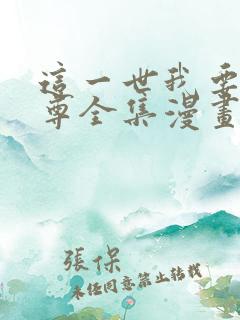 這一世我要
尊全集漫畫
張保
未經同意禁止轉載